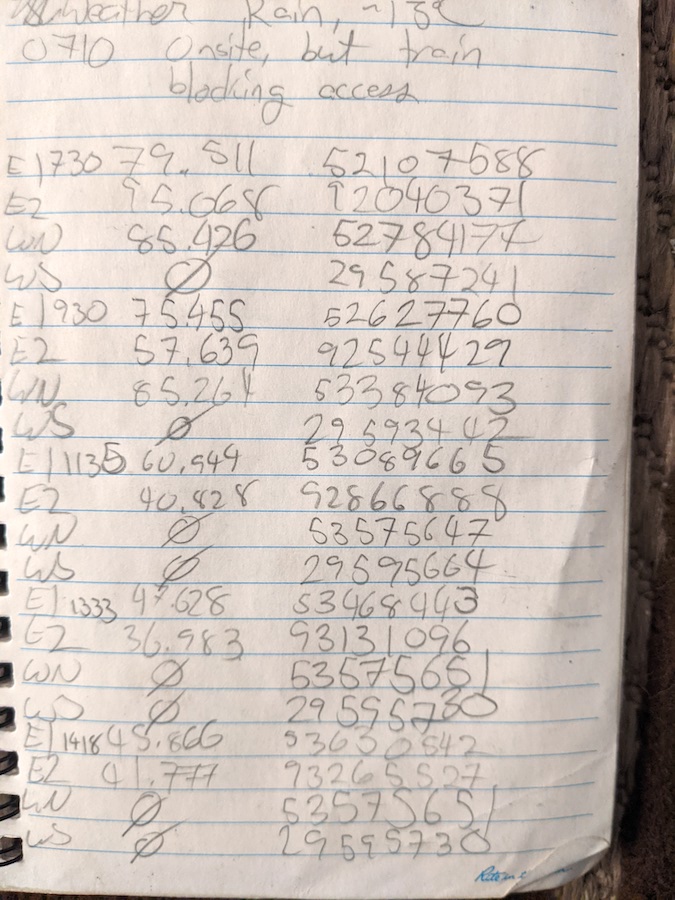 Weather Rain, ~13°C
0710 Onsite, but train
blocking access
E1 730 79.511 52107588
E2 95.068 92040371
WN 85.426 52784177
WS Ø 29587241
E1 930 75.455 52627760
E2 57.639 92544429
WN 85.264 53384093
WS Ø 29593442
E1 1135 60.944 53089665
E2 40.828 92866888
WN Ø 53575647
WS Ø 29595664
E1 1333 47.628 53468443
E2 36.983 93131096
WN Ø 53575651
WS Ø 29595730
E1 1418 45.866 53630542
E2 41.777 93265527
WN Ø 53575651
WS Ø 29595730